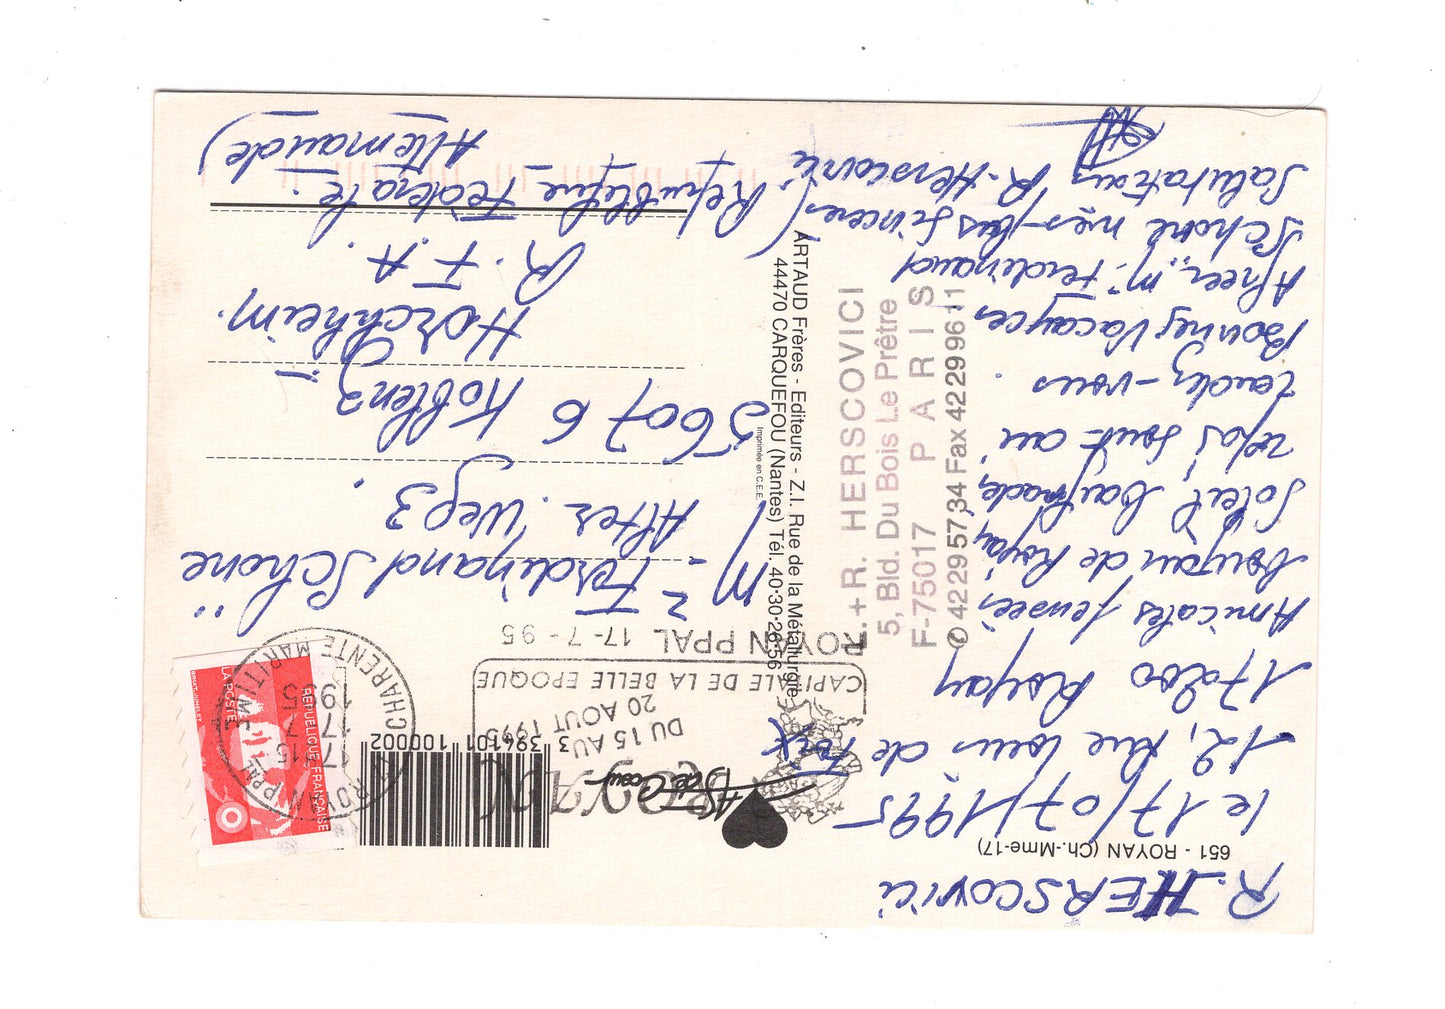 R. HERSCOVICI
651 - ROYAN (Ch.-Mme-17)
le 17/07/1995
12, Rue Lous de Foix
17200 Royan
Amicales pensées,
Bonjour de Royan,
Soleil baignade,
repos sont au
rendez-vous.
Bonnes Vacances
Agréer, Mr Ferdinand
Schöne mes plus sinceres
Salutations R. Herscovici
L.+R. HERSCOVICI
5, Bld. Du Bois Le Prêtre
F-75017 PARIS
✆ 42 29 57 34 Fax 42 29 96 11
As de Cœur
ARTAUD Frères - Editeurs - Z.I. Rue de la Métallurgie
44470 CARQUEFOU (Nantes) Tél. 40·30·26·56
Imprimée en C.E.E.
3 394101 100002
ROYAN
DU 15 AU
20 AOUT 1995
CAPITALE DE LA BELLE EPOQUE
ROYAN PPAL 17-7-95
ROYAN PPAL
17 H 15
17 7
1995
CHARENTE MARITIME
REPUBLIQUE FRANÇAISE
LA POSTE
BRIAT-JUMELET
Mr Ferdinand Schöne
Alter Weg 3.
56076 Koblenz
Horchheim.
R.F.A.
(Republique Fédérale
Allemande)